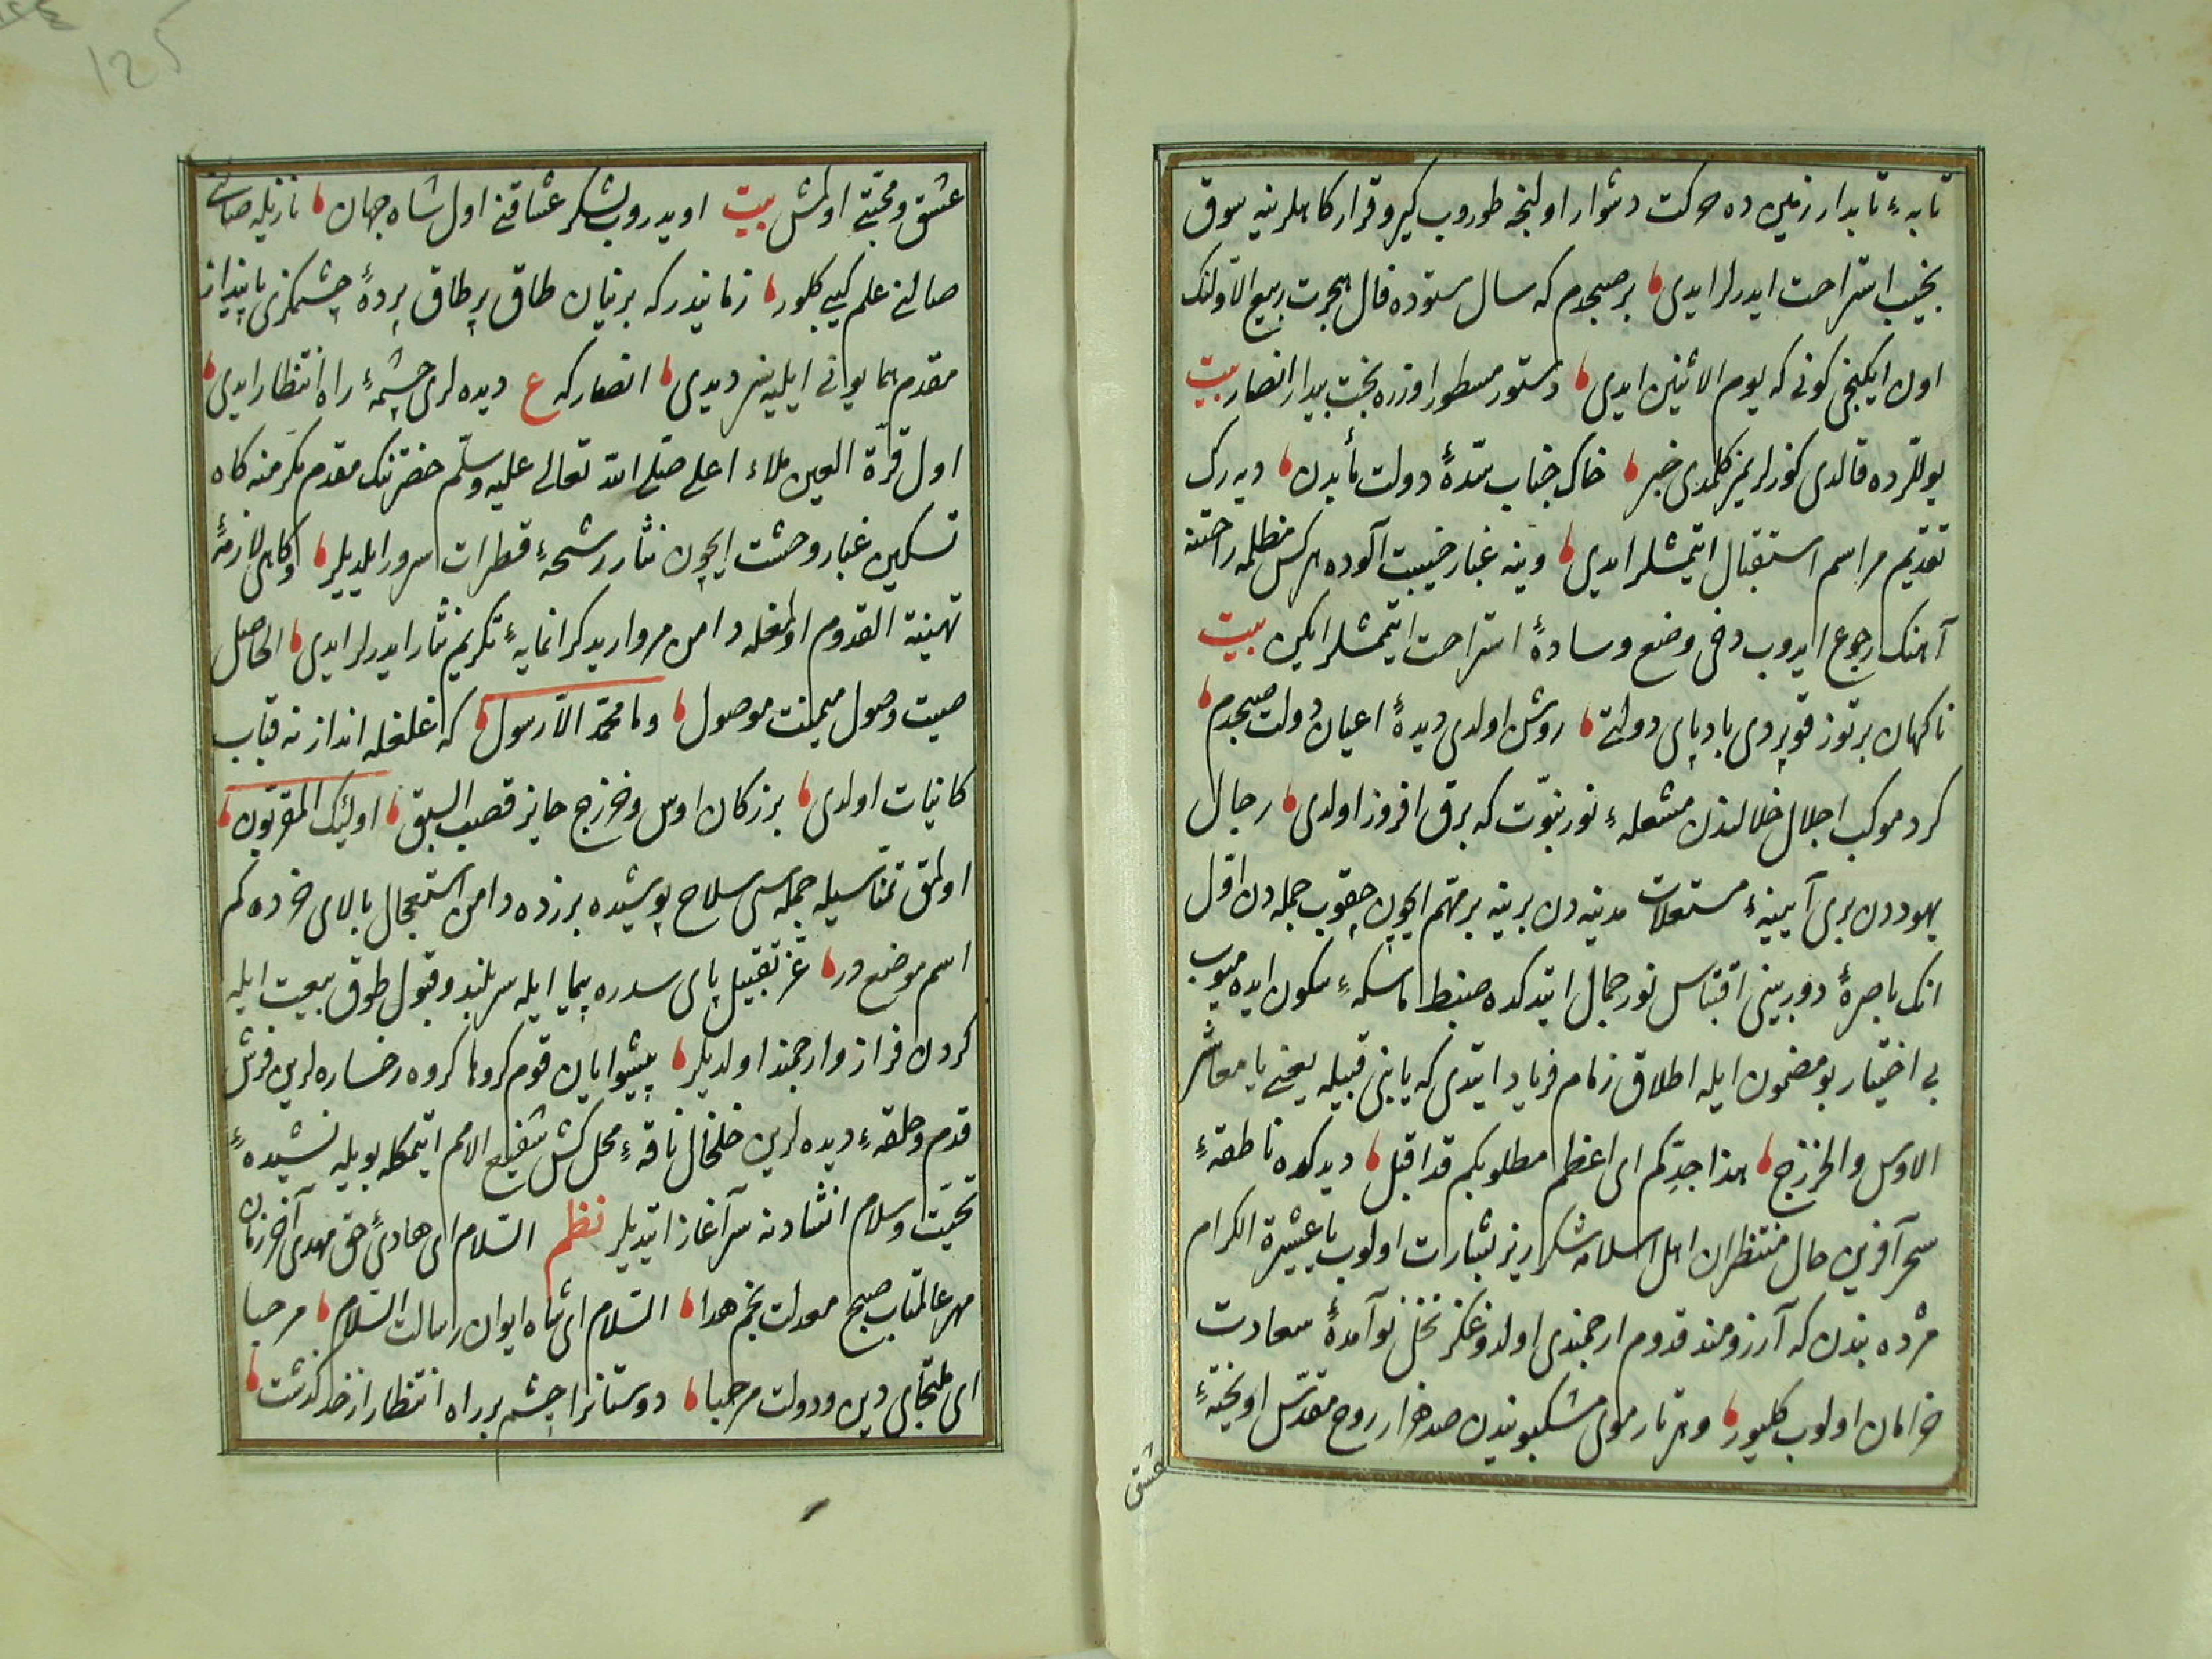 تابهٔ تابدار زمین ده حرکت دشوار اولنجه طوروب کیرو قرار کاهلرینه سوق
نجیب استراحت ایدرلر ایدی بر صبحدم که سال ستوده فال هجرت ربیع الاولنک
اون ایکنجی کونی که یوم الاثنین ایدی دستور مسطور اوزره بخت بیدار انصار بیت
یوللرده قالدی کوزلریمز کلمدی خبر خاک جناب سدهٔ دولت مأبدن دیه رک
تقدیم مراسم استقبال ایتمشلر ایدی وینه غبار خیبت آلوده هرکس مظلمه راحتنه
آهنک رجوع ایدوب دخی وضع وسادهٔ استراحت ایتمشلر ایکین بیت
ناکهان بر توز قوپردی بادپای دولتی روشن اولدی دیدهٔ اعیان دولت صبحدم
کرد موکب اجلال خلالندن مشعلهٔ نور نبوت که برق افروز اولدی رجال
یهوددن بری آیینهٔ مستعلات مدینه دن برینه بر مهم ایچون چقوب جمله دن اول
انک باصرهٔ دوربینی اقتباس نور جمال ایتدکده ضبط ماسکهٔ سکون ایده میوب
بی اختیار بو مضمون ایله اطلاق زمام فریاد ایتدی که یا بنی قبیله یعنی یا معاشر
الاوس والخزرج هذا جدکم ای اعظم مطلوبکم قد اقبل دیدکده ناطقهٔ
سحر آفرین حال منتظران اهل اسلامه شکرریز بشارات اولوب یا عشیرة الکرام
مژده بندن که آرزومند قدوم ارجمندی اولدوغکز نخل نو آمدهٔ سعادت
خرامان اولوب کلیور وهر تار موی مشکبویندن صد هزار روح مقدس اویختهٔ
عشق
عشق و محبتی اولمش بیت اویدروب لشکر عشاقنی اول شاه جهان نازیله صالنه
صالنه علم کیبی کلور زمانیدر که برنیان طاق بر طاق پردهٔ چشمکزی پاینداز
مقدم همایونی ایلیه سز دیدی انصار که ع دیده لری چشمهٔ راه انتظار ایدی
اول قرة العین ملاء اعلی صلی الله تعالی علیه وسلم حضرتنک مقدم مکرمنه کاه
تسکین غبار وحشت ایچون نثار رشحهٔ قطرات سرور ایلدیلر وکاهی لازمهٔ
تهنیة القدوم اولمغله دامن مروارید کرانمایهٔ تکریم نثار ایدرلر ایدی الحاصل
صیت وصول میمنت موصول وما محمد الا رسول که غلغله انداز نه قباب
کائنات اولدی بزرکان اوس وخزرج حایز قصب السبق اولئک المقربون
اولمق تمناسیله جمله سی سلاح پوشیده بر زده دامن استعجال بالای حرده که
اسم موضع در عز تقبیل پای سدره پیما ایله سربلند وقبول طوق بیعت ایله
کردن فراز وارجمند اولدیلر پیشوایان قوم کروها کروه رخساره لرین فرش
قدم وحلقهٔ دیده لرین خلخال ناقهٔ محمل کش شفیع الامم ایتمکله بویله نشیدهٔ
تحیت وسلام انشادنه سرآغاز ایتدیلر نظم السلام ای هادئ حق مهدی آخر زمان
مهر عالمتاب صبح معدلت نجم هدا السلام ای شاه ایوان رسالت السلام مرحبا
ای ملتجای دین ودولت مرحبا دوستانرا چشم بر راه انتظار از حد کذشت